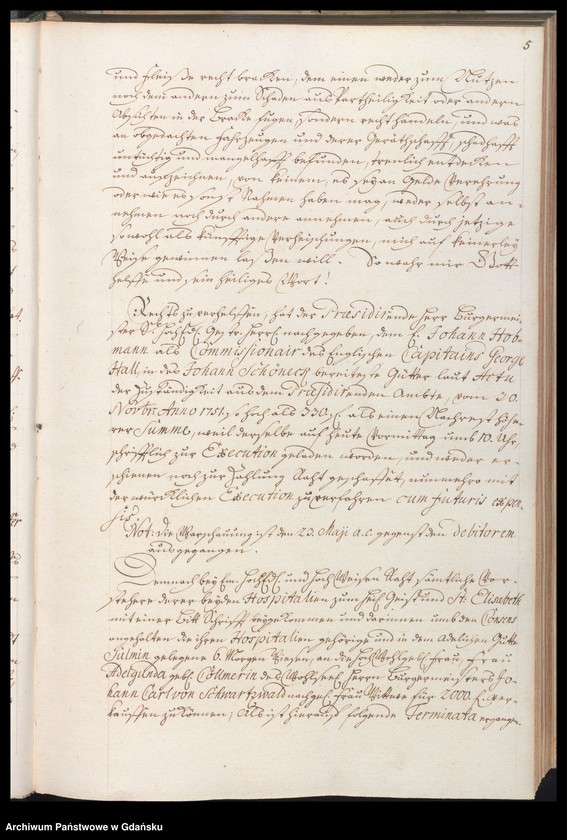 5
und Fleiße recht bracken, dem einen weder zum Nutzen
noch dem andern zum Schaden aus Partheiligkeit oder andern
Absichten in der Bracke fügen, sondern recht handeln, und was
an obgedachten Fahrzeugen und derer Geräthschafft, schadhafft
untüchtig und mangelhafft befunden, treulich entdecken
und anzeichnen, von keinem, es sey an Gelde Verehrung
oder wie es sonst Nahmen haben mag, weder selbst an-
nehmen noch durch andere annehmen, auch durch jetzige
sowohl als künfftige Verheischungen, mich auf keinerley
Weise gewinnen laßen will. So wahr mir Gott
helffe und sein heiliges Wort!
Rechts zu verhelffen, hat der Præsidirende Herr Bürgermei-
ster nachgegeben, dem H. Johann Hob-
mann als Commissionair des Englischen Capitains George
Hall, in des Johann Schöneich bereiteste Gütter laut Actu
der Zuständigkeit aus dem Præsidirenden Ambte, vom 20.
Novbr: Anno 1751, so hoch als 330 f. als einen Nachrest höhe-
rer Summe, weil derselbe auf heute Vormittag umb 10. Uhr,
schrifftlich zur Execution geladen worden, und weder er-
schienen noch zur Zahlung Raht geschaffet, nunmehro mit
der würcklichen Execution zu verfahren cum futuris expen-
sis.
Not: die Warschauung ist den 23. Maji a.c. gegenst den debitorem
ausgegangen.
Demnach bey Em. und Hoch Weisen Raht sämtliche Vor-
stehere derer beyden Hospitalien zum heil. Geist und St. Elisabeth
mit einer Bitt Schrifft eingekommen und darinnen umb den Consens
angehalten die ihren Hospitalien gehörige und in dem Adelichen Gutte
Sulmin gelegene 6. Morgen Wiesen, an die Frau, Frau
Adelgunda geb. des Wohlseel. Herrn Bürgermeisters Jo-
hann Carl von Schwartzwald nachgel. Frau Wittwe für 2000. f. ver-
kauffen zu können; Als ist hierauf folgende Terminata ergangen.
Archiwum Państwowe w Gdańsku